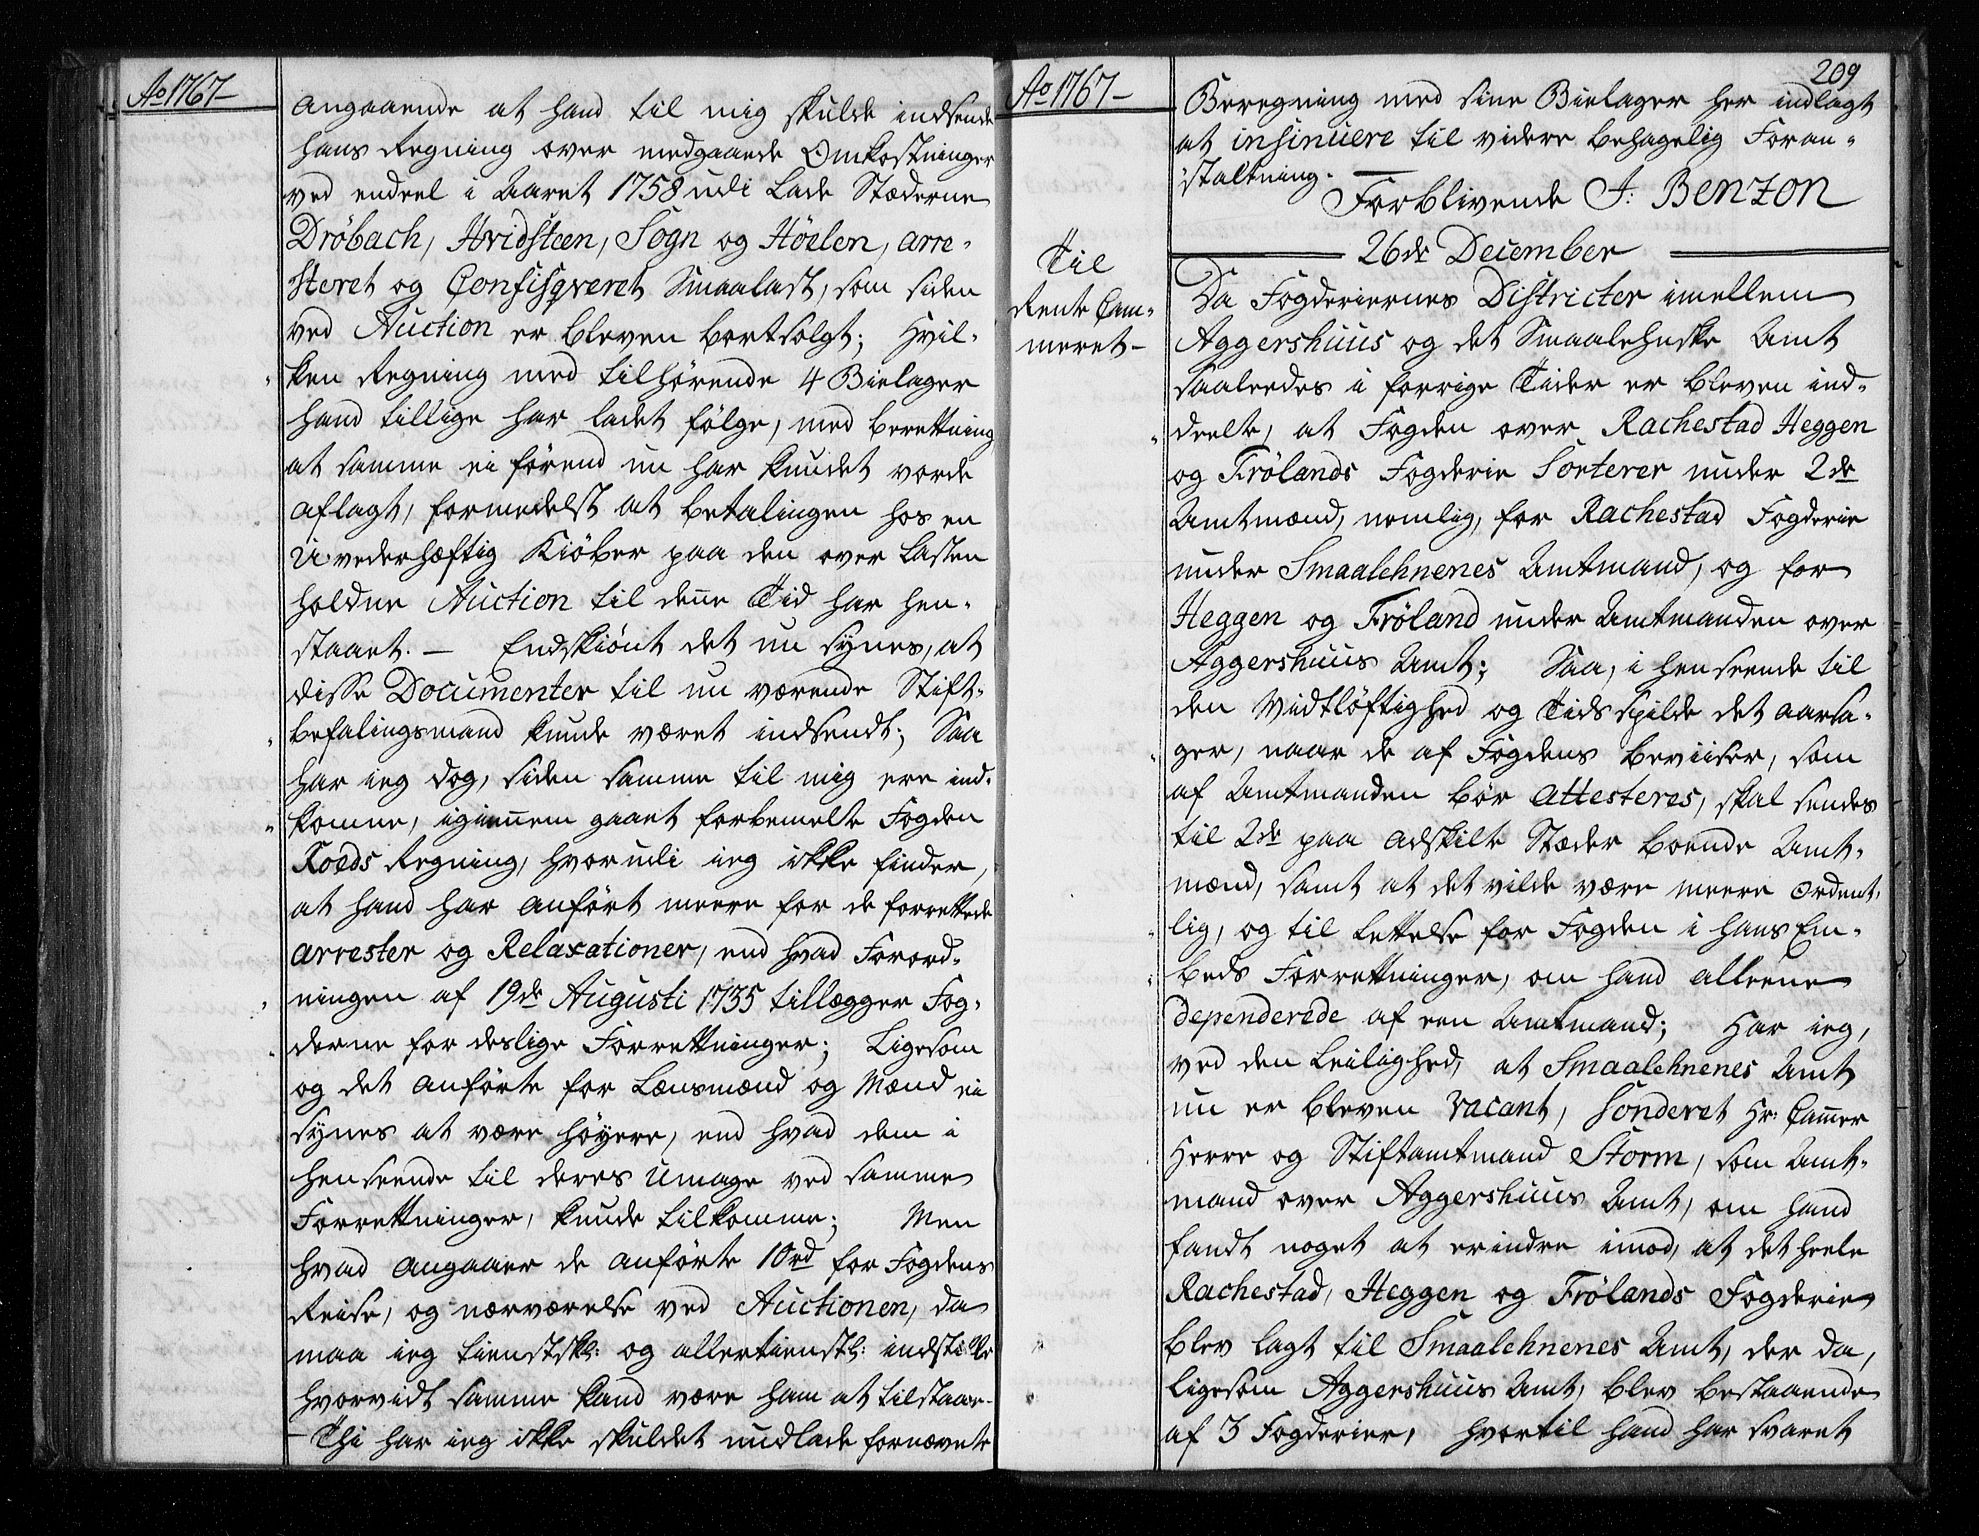 Ao 1767-
angaaende at hand til mig skulde indsende
hans Regning over medgaaede Omkostninger
ved endeel i Aaret 1758 udi Lade Stæderne
Dröbach, Hvidsteen, Sogn og Hölen, arre-
steret og Confisqveret Smaalast, som siden
ved Auction er bleven bortsolgt; Hvil-
ken Regning med tilhørende 4 Bielager
hand tillige har ladet følge, med beretning
at samme ei førend nu har kundet vorde
aflagt, formedelst at betalingen hos en
U-vederhæftig Kiöber paa den over Lasten
holdne Auction til denne Tid har hen-
staaet. — Endskiönt det nu synes, at
disse Documenter til nu værende Stift-
befalingsmand kunde været indsendt; Saa
har ieg dog, siden samme til mig ere ind-
komne, igiennem gaaet forbemelte Fogden
Koeds Regning, hvorudi ieg ikke finder,
at hand har anfört meere for de forrettede
arrester og Relaxationer, end hvad Forord-
ningen af 19de Augusti 1735 tillægger Fog-
derne for deslige Forrettninger; Ligesom
og det anförte for Lænsmænd og Mænd ei
synes at være höyere, end hvad dem i
henseende til deres Umage ved samme
Forrettninger, kunde tilkomme; Men
hvad angaaer de anförte 10 rd for Fogdens
Reise, og nærværelse ved Auctionen, da
maa ieg tienstskl: og allertienstl: indstille
hvorvidt samme kand være ham at tilstaae.
— Thi har ieg ikke skuldet undlade fornævnte
Ao 1767-
209
Beregning med sine Bielager her indlagt
at insinuere til videre behagelig Foran-
staltning.
Forblivende J: Benzon
26de December
Til
Rente Cam-
meret-
Da Fogderiernes Districter imellem
Aggershuus og det Smaalehnske Amt
saaledes i forrige Tider er bleven ind-
deelte, at Fogden over Rachestad Heggen
og Frölands Fogderie Sorterer under 2de
Amtmænd, nemlig, for Rachestad Fogderie
under Smaalehnenes Amtmand, og for
Heggen og Fröland under Amtmanden over
Aggershuus Amt; Saa, i henseende til
den Vidtlöftighed og Tids spilde det aarsa-
ger, naar de af Fogdens beviiser, som
af Amtmanden bör attesteres, skal sendes
til 2de paa adskilte Stæder boende Amt-
mænd, samt at det vilde være meere ordent-
lig, og til Lettelse for Fogden i hans Em-
beds Forrettninger, om hand alleene
dependerede af een Amtmand; Har ieg,
ved den Leilighed, at Smaalehnenes Amt
nu er bleven vacant, Sonderet Hr: Cammer
Herre og Stiftamtmand Storm, som Amt-
mand over Aggershuus Amt, om hand
fandt noget at erindre imod, at det heele
Rachestad, Heggen og Frölands Fogderie
blev lagt til Smaalehnenes Amt, der da,
ligesom Aggershuus Amt, blev bestaaende
af 3 Fogderier, hvortil hand har svaret